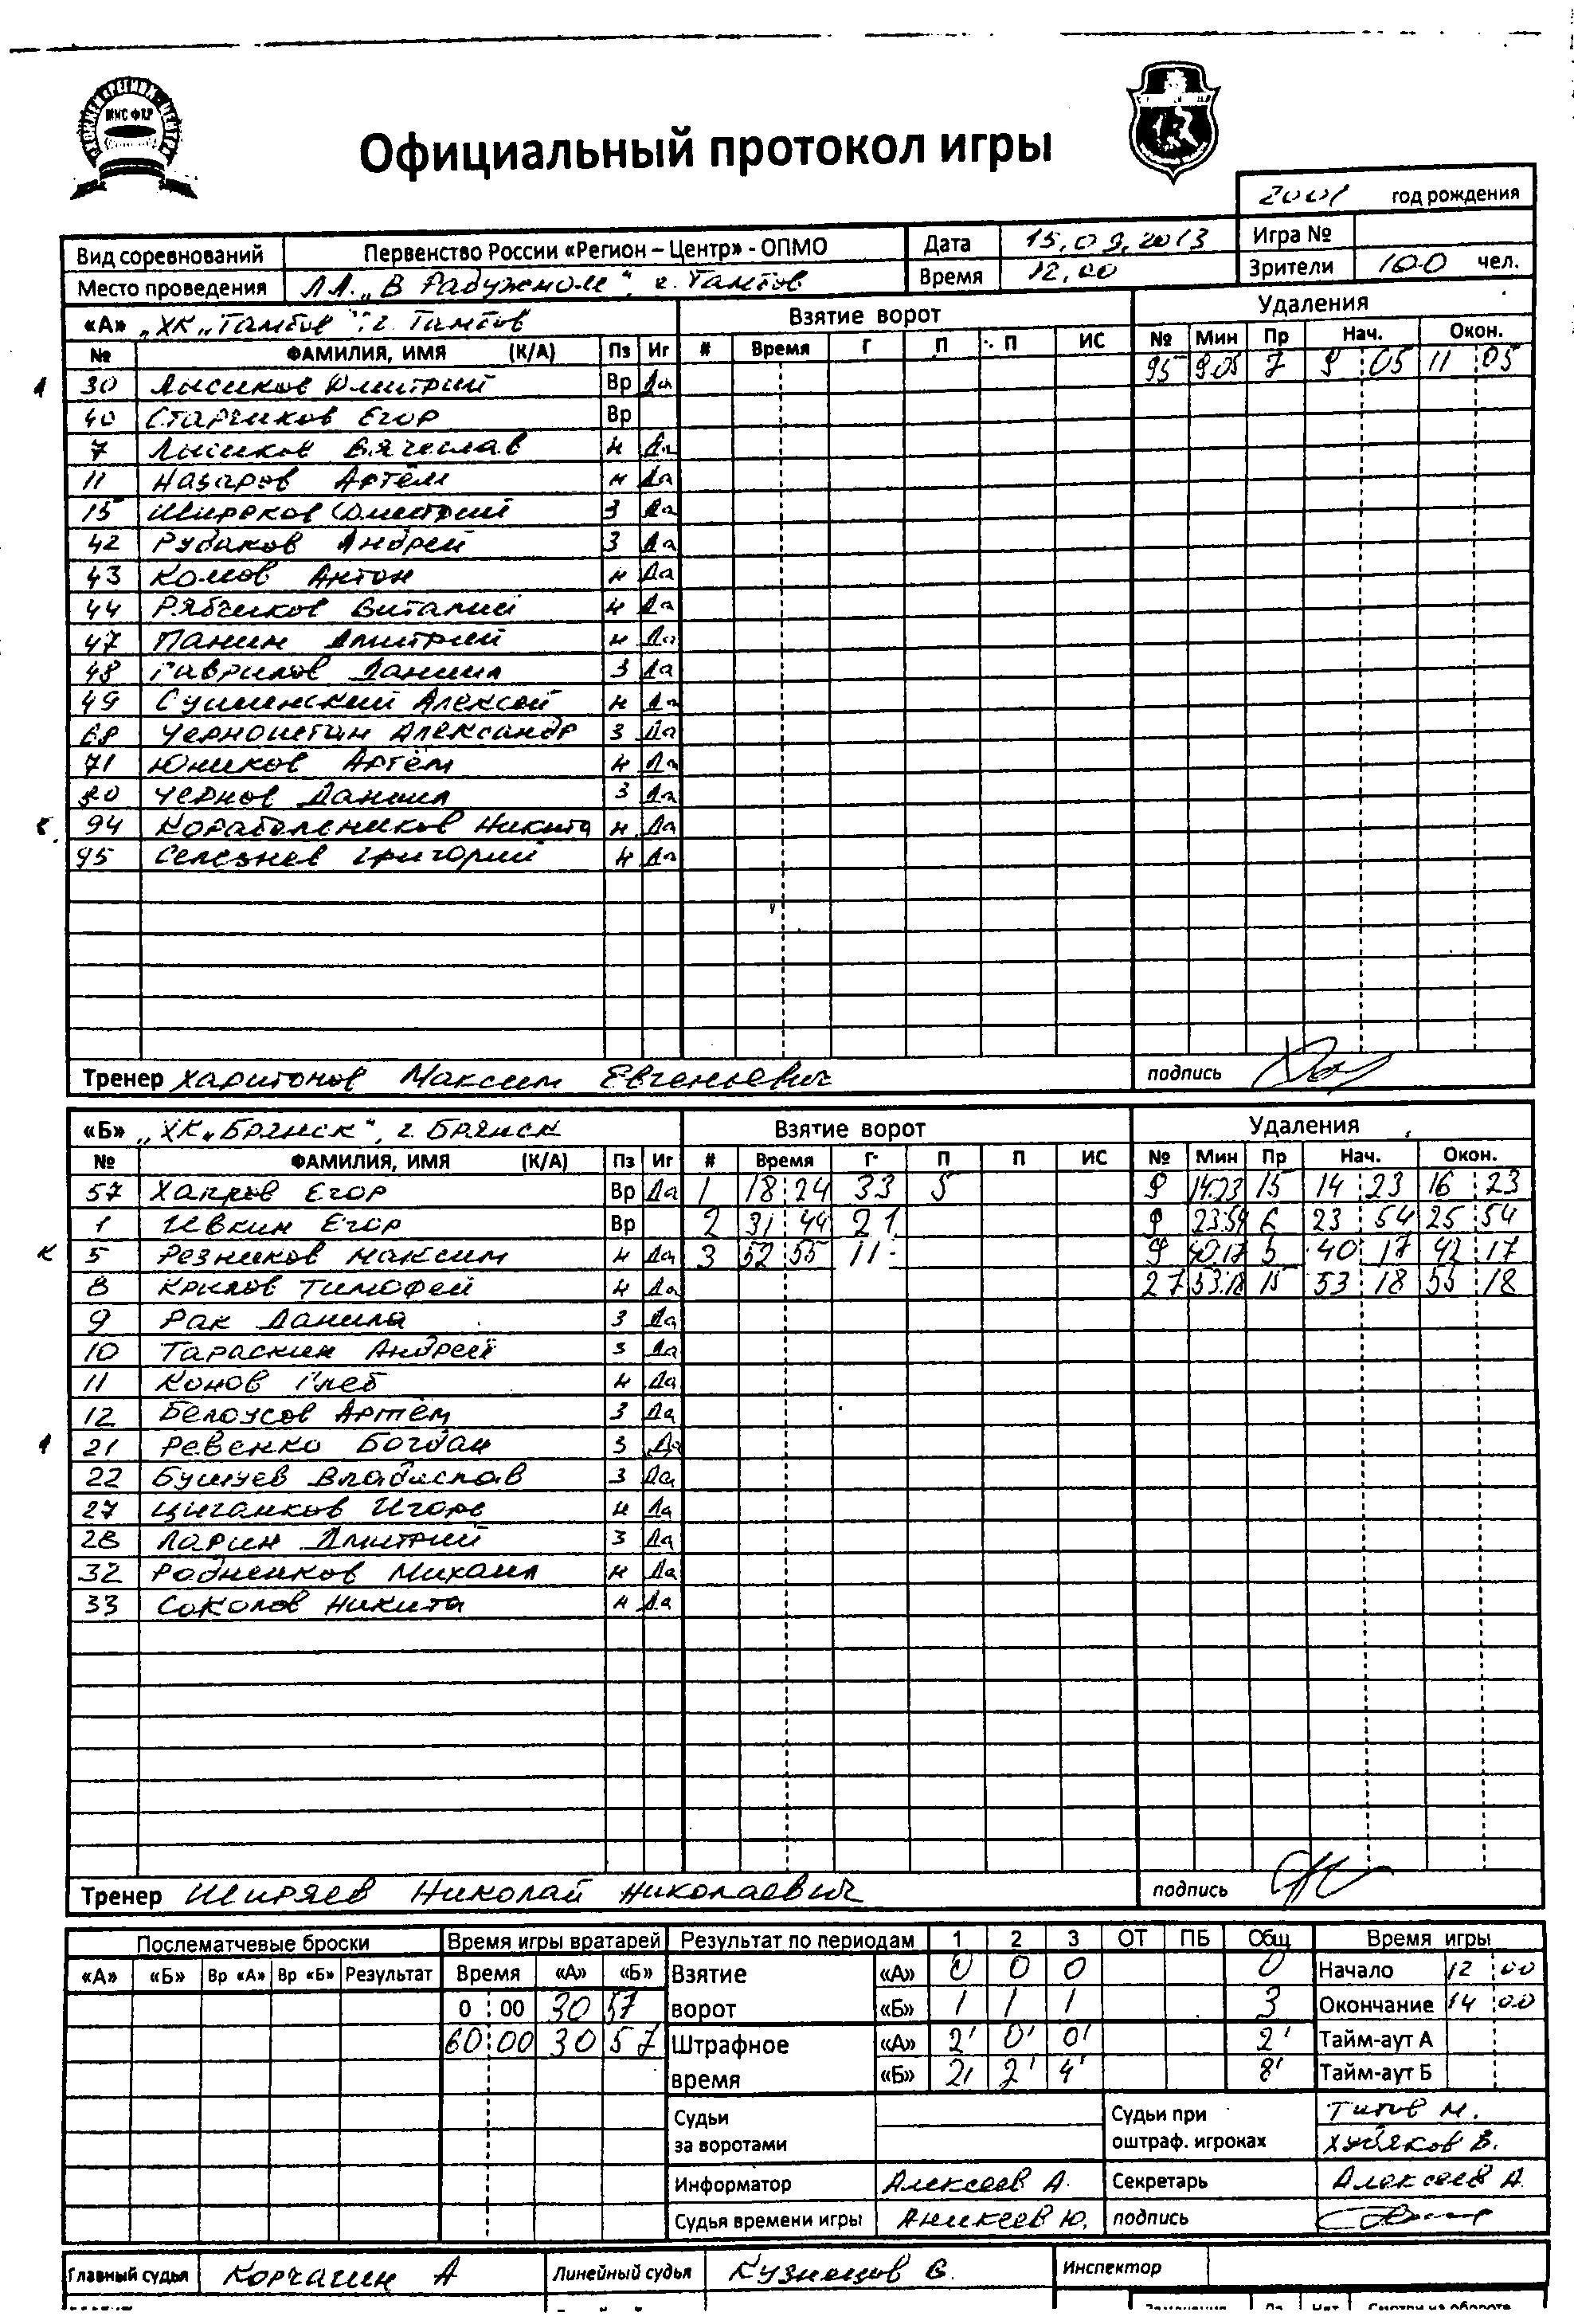 Официальный протокол игры
2001 год рождения
Вид соревнований Первенство России «Регион – Центр» - ОПМО Дата 15.09.2013 Игра №
Место проведения Л.А. „В Радужном“, г. Тамбов Время 12.00 Зрители 100 чел.
«А» „ХК„Тамбов“, г. Тамбов Взятие ворот Удаления
№ ФАМИЛИЯ, ИМЯ (К/А) Пз Иг # Время Г П П ИС № Мин Пр Нач. Окон.
А 30 Лысиков Дмитрий Вр Да 95 9.05 7 9 05 11 05
40 Старчиков Егор Вр
7 Лысиков Вячеслав н Да
11 Назаров Артём н Да
15 Широков Дмитрий З Да
42 Рудаков Андрей З Да
43 Комов Антон н Да
44 Рябчиков Виталий н Да
47 Панин Дмитрий н Да
48 Гаврилов Даниил З Да
49 Сушинский Алексей н Да
68 Черноштан Александр З Да
71 Юников Артём н Да
80 Чернов Даниил З Да
94 Корабельников Никита н Да
95 Селезнев Григорий н Да
Тренер Харитонов Максим Евгеньевич подпись
«Б» „ХК„Брянск“, г. Брянск Взятие ворот Удаления
№ ФАМИЛИЯ, ИМЯ (К/А) Пз Иг # Время Г П П ИС № Мин Пр Нач. Окон.
57 Хапров Егор Вр Да 1 18 24 33 5 9 14.23 15 14 23 16 23
1 Ивкин Егор Вр 2 31 44 21 9 23.54 6 23 54 25 54
К 5 Резников Максим н Да 3 52 55 11 9 40.17 5 40 17 42 17
8 Крылов Тимофей н Да 27 53.18 15 53 18 55 18
9 Рак Данила З Да
10 Тараскин Андрей З Да
11 Конов Глеб н Да
12 Белоусов Артём З Да
А 21 Ревенко Богдан З Да
22 Бушуев Владислав З Да
27 Цыганков Игорь н Да
28 Ларин Дмитрий З Да
32 Родненков Михаил н Да
33 Соколов Никита н Да
Тренер Ширяев Николай Николаевич подпись
Послематчевые броски Время игры вратарей Результат по периодам 1 2 3 ОТ ПБ Общ Время игры
«А» «Б» Вр «А» Вр «Б» Результат Время «А» «Б» Взятие «А» 0 0 0 0 Начало 12 00
0 00 30 57 ворот «Б» 1 1 1 3 Окончание 14 00
60 00 30 57 Штрафное «А» 2' 0' 0' 2' Тайм-аут А
время «Б» 2' 2' 4' 8' Тайм-аут Б
Судьи Судьи при Титов М.
за воротами оштраф. игроках Худяков В.
Информатор Алексеев А. Секретарь Алексеев А.
Судья времени игры Аникеев Ю. подпись
Главный судья Корчагин А Линейный судья Кузнецов С. Инспектор